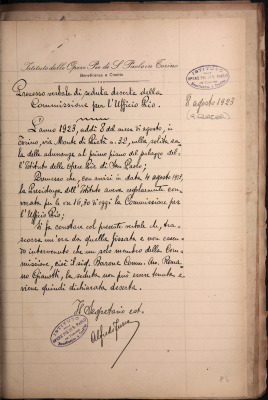 Istituto delle Opere Pie di S. Paolo in Torino
Beneficenza e Credito
Processo verbale di seduta deserta della
Commissione per l'Ufficio Pio.
8 agosto 1923
L'anno 1923, addì 8 del mese di agosto, in
Torino, via Monte di Pietà n. 32, nella solita sa
la delle adunanze al primo piano del palazzo del
l'Istituto delle Opere Pie di San Paolo;
Premesso che, con avvisi in data 4 agosto 1923,
la Presidenza dell'Istituto aveva regolarmente con
vocata per le ore 16,30 d'oggi la Commissione per
l'Ufficio Pio;
Si fa constare col presente verbale che, tra
scorsa un'ora da quella fissata e non essen
do intervenuto che un solo membro della Com
missione, cioè il sig. Barone Comm. Avv. Roma
no Gianotti, la seduta non può essere tenuta e
viene quindi dichiarata deserta.
Il Segretario